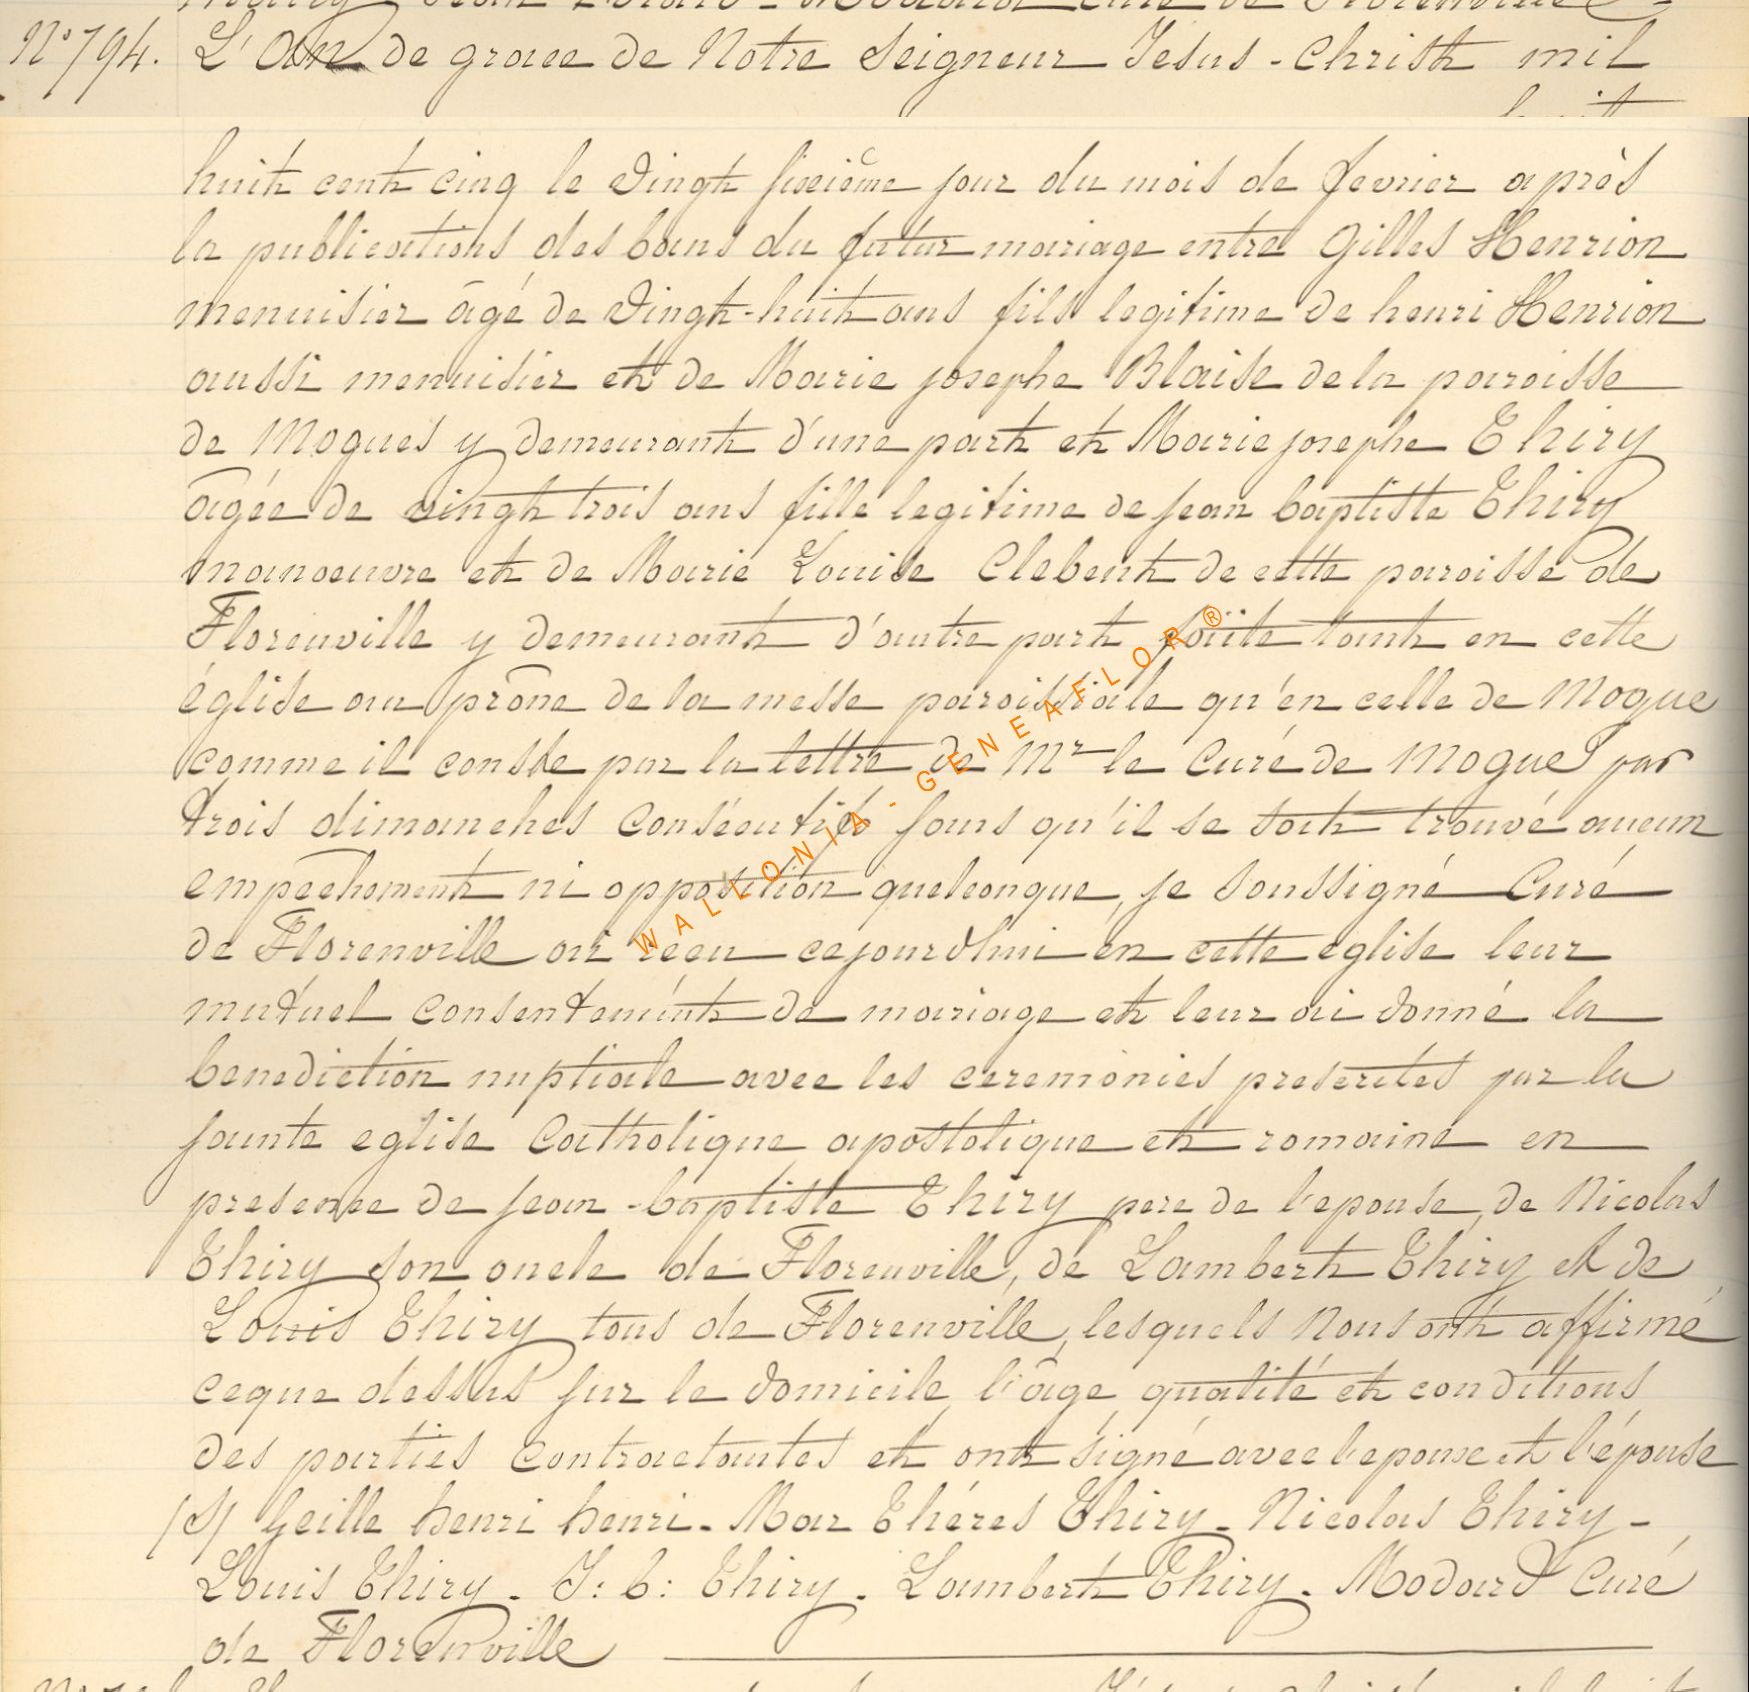 N° 794. L'An de grace de Notre Seigneur Jesus-Christ mil
huit
huit cent cinq le vingt sixième jour du mois de fevrier après
la publications des bans du futur mariage entre Gilles Henrion
menuisier âgé de vingt-huit ans fils legitime de henri Henrion
aussi menuisier et de Marie josephe Blaise de la paroisse
de Mogues y demeurant d'une part et Marie josephe Thiry
âgée de vingt trois ans fille legitime de jean baptiste Thiry
manoeuvre et de Marie Louise Clebent de cette paroisse de
Florenville y demeurant d'autre part faite tant en cette
église au prône de la messe paroissiale qu'en celle de Mogue
comme il conste par la lettre de Mr le Curé de Mogues par
trois dimanches conséutifs sans qu'il se soit trouvé aucun
empechement ni opposition quelconque, je soussigné Curé
de Florenville ai recu cejourdhui en cette eglise leur
mutuel consentement de mariage et leur ai donné la
benediction nuptiale avec les ceremonies prescrites par la
sainte eglise Catholique apostolique et romaine en
presence de jean-baptiste Thiry pere de l'epouse, de Nicolas
Thiry son oncle de Florenville, de Lambert Thiry et de
Louis Thiry tous de Florenville, lesquels Nous ont affirmé
ceque dessus sur le domicile, l'âge, qualité et conditions
des parties contractantes et ont signé avec l'epoux et l'épouse
(S) Geille henri henri - Mar Théres Thiry - Nicolas Thiry -
Louis Thiry - J: b: Thiry - Lambert Thiry - Modard Curé
de Florenville
WALLONIA-GENEAFLOR®